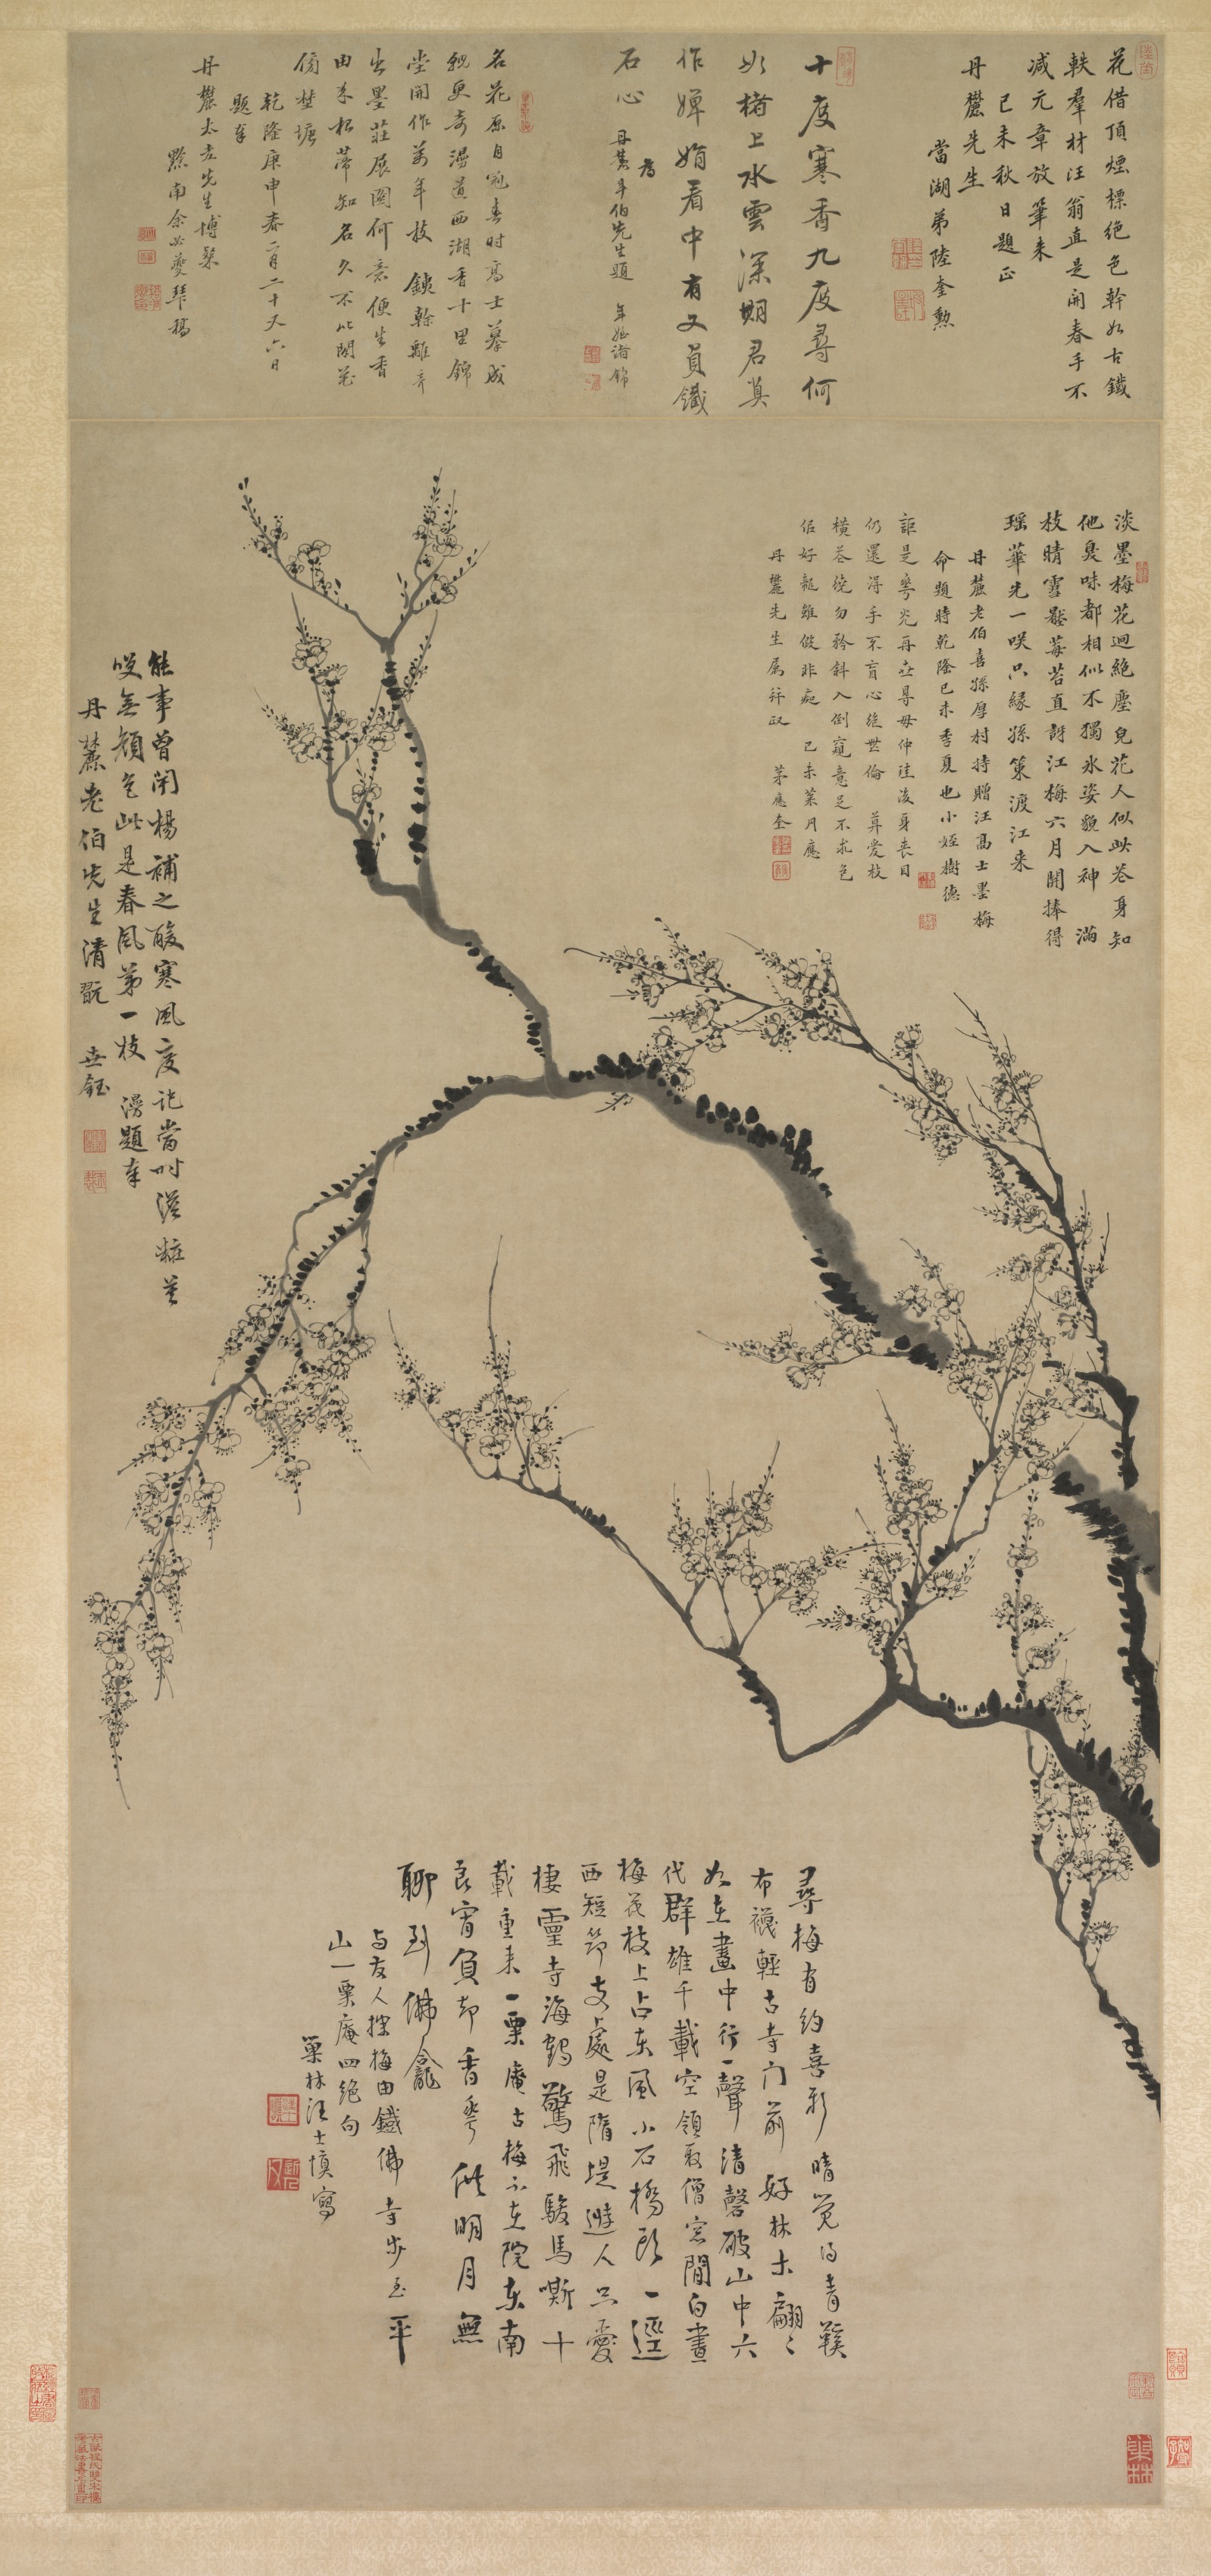 花借頂煙標絕色幹如古鐵
軼羣材汪翁直是開春手不
減元章放筆來
己未秋日題正
丹麓先生
當湖弟陸奎勲
十度寒香九度尋何
如楮上水雲深期君莫
作嬋娟看中有文貞鐵
石心
丹麓年伯先生題
名花原自冠春時高士摹成
絕更奇漫道西湖香十里錦
堂開作萬年枝 鐵幹離奇
出墨莊展圖何意便生香
由來松蒂知名久不比閒花
傍埜塘
乾隆庚申春二月二十又六日
題奉
丹麓太老先生博粲
黔南余必夔拜稿
淡墨梅花迥絕塵皃花人似此花身知
他臭味都相似不獨氷姿貌入神 滿
枝晴雪壓莓苔直訝江梅六月開捧得
瑶華先一咲只緣孫策渡江來
丹麓老伯喜孫厚村持贈汪高士墨梅
命題時乾隆己未季夏也小姪樹德
詎是華光再世尋毋仲珪後身喪目
仍還淂手不盲心絕世倫 莽愛枝
橫花繞勿矜斜入倒窺意足不求色
佀好龍雖假非癡 己未菓月應
丹麓先生屬并政 茅應奎
能事曾聞楊補之酸寒風度記當時淡粧羌
咲無煩色此是春風第一枝 漫題奉
丹麓老伯先生清翫 世鈺
尋梅有約喜新晴覓得青鞵
布襪輕古寺門前好林木翩〻
如在畫中行 一聲清磬破山中六
代群雄千載空領取僧窓閒白晝
梅花枝上占東風 小石橋頭一逕
西短笻支處是隋堤遊人只愛
棲靈寺海鶴驚飛駿馬嘶 十
載重來一粟庵古梅不在院東南
良宵負却香雪供明月無
聊到佛龕
与友人探梅由鐵佛寺步至平
山一粟庵四絕句
巢林汪士慎寫
巢林